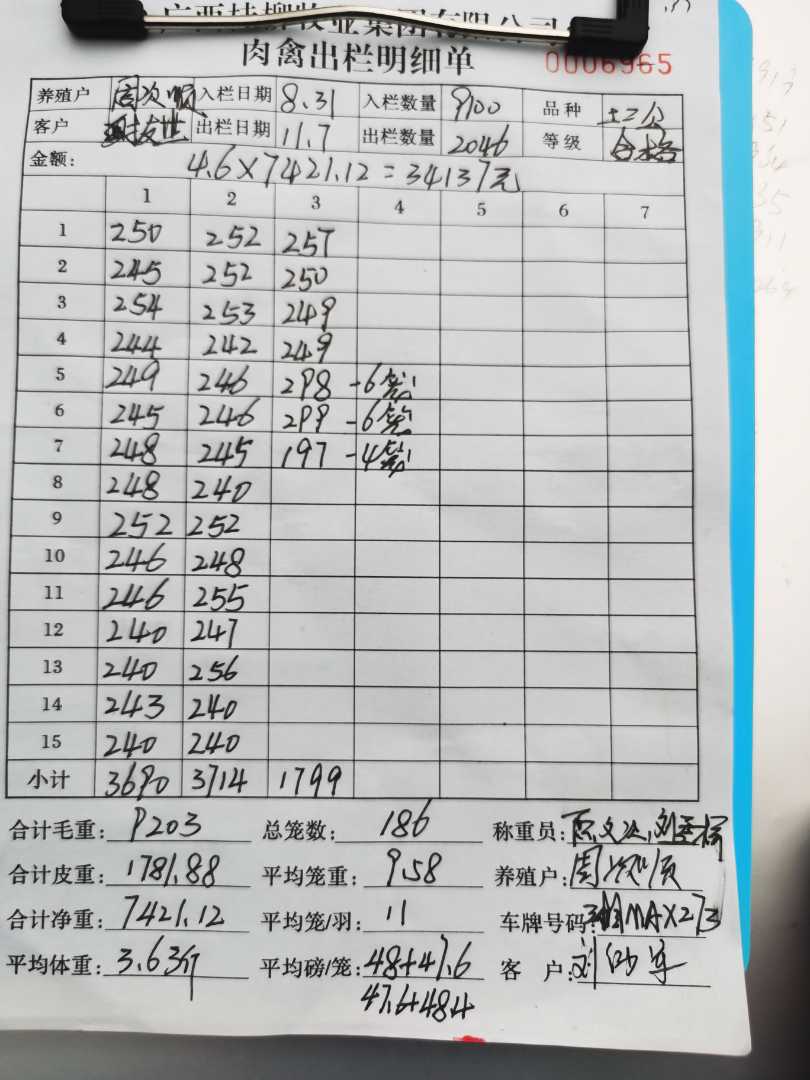 广西桂柳牧业集团有限公司
肉禽出栏明细单 0006965
养殖户 周次顺 入栏日期 8.31 入栏数量 9100 品种 土二公
客户 出栏日期 11.7 出栏数量 2046 等级 合格
金额: 4.6×7421.12=34137元
1 2 3 4 5 6 7
1 250 252 257
2 245 252 250
3 254 253 249
4 244 242 249
5 249 246 298 -6笼
6 245 246 299 -6笼
7 248 245 197 -4笼
8 248 240
9 252 252
10 246 248
11 246 255
12 240 247
13 240 256
14 243 240
15 240 240
小计 3690 3714 1799
合计毛重: 9203 总笼数: 186 称重员:
合计皮重: 1781.88 平均笼重: 9.58 养殖户: 周次顺
合计净重: 7421.12 平均笼/羽: 11 车牌号码:
平均体重: 3.63斤 平均磅/笼: 48+47.6 客 户:
47.6+48.4